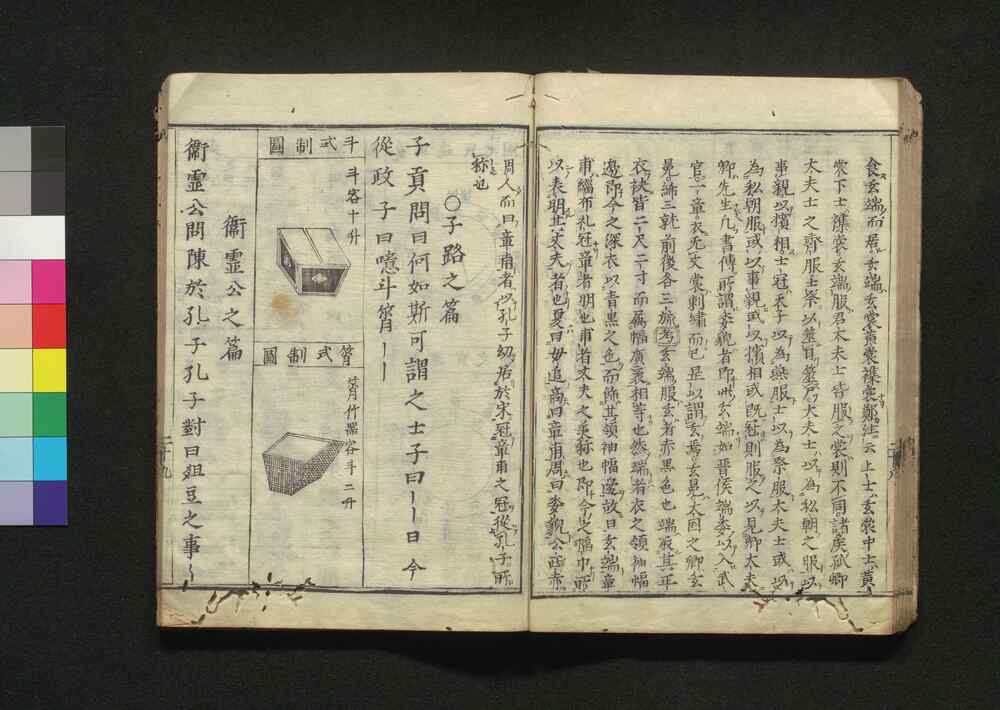 食玄端而居玄端玄裳黄裳襍裳鄭注云上士玄裳中士黄
裳下士襍裳玄端服君大夫士皆服之裳則不同諸矦孤卿
大夫士之齊服士祭以筮日筮尸大夫士以為私朝之服以
事親以擯相士冠天子以為燕服士以為祭服大夫士或以
為私朝服或以事親或以擯相或既冠則服之以見卿大夫
卿先生凡書傳所謂委貌者即此玄端如晋侯端委以入武
官一章衣无文裳刺繡而已是以謂玄焉玄冕大困之卿玄
冕繅三就前後各三旒考玄端服玄者赤黒色也端取其正
衣袂皆二尺二寸而属幅廣袤相等也然端者衣之領袖幅
邉即今之深衣以青黒之色而絛其領袖幅邉故曰玄端章
甫緇布礼冠章者明也甫者丈夫之美称也即今之幅巾所
以表明其丈夫者也夏曰毋追商曰章甫周曰委貌公西赤
周人而曰章甫者以孔子幼居於宋冠章甫之冠從孔子所
称也
○子路之篇
子貢問曰何如斯可謂之士子曰〡〡曰今
從政子曰噫斗筲〡〡
斗式制圖
斗容十升
筲式制圖
筲竹噐容斗二升
衞霊公之篇
衞霊公問陳於孔子孔子對曰爼豆之事〡